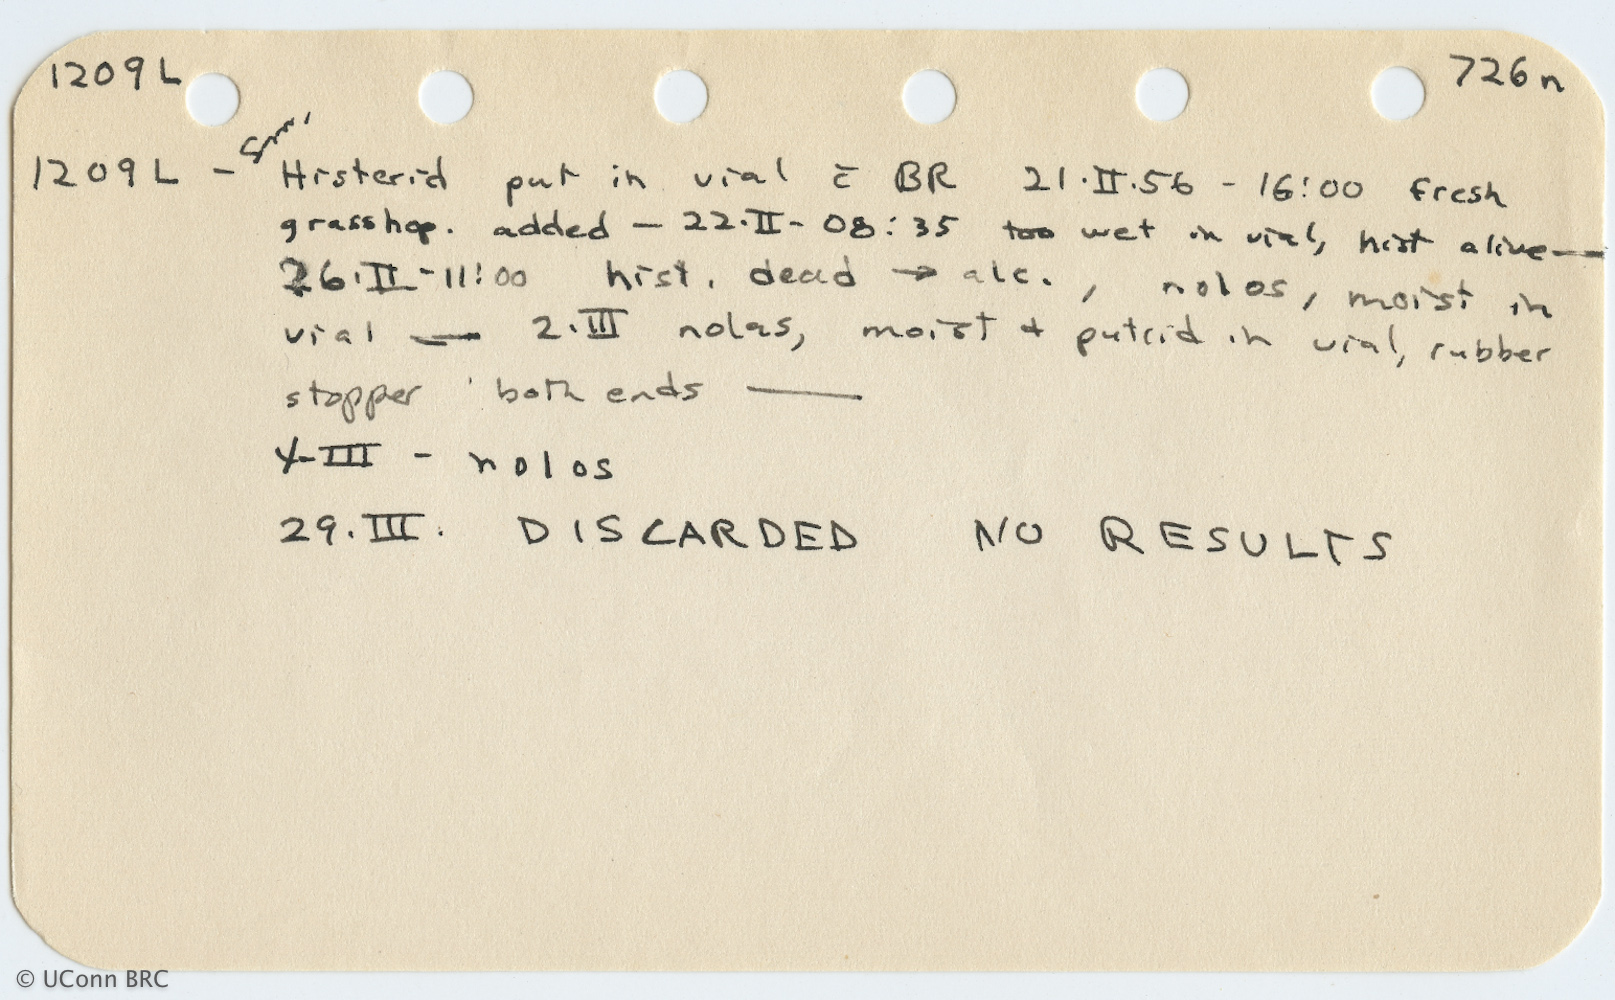 1209L 726n
sm.
1209L - Histerid put in vial c̄ BR 21.II.56 - 16:00 fresh
grasshop. added — 22.II - 08:35 too wet in vial, hist alive —
26.II - 11:00 hist. dead → alc., nolos, moist in
vial — 2.III nolas, moist + putrid in vial, rubber
stopper both ends —
X-III - nolos
29.III. DISCARDED NO RESULTS
© UConn BRC